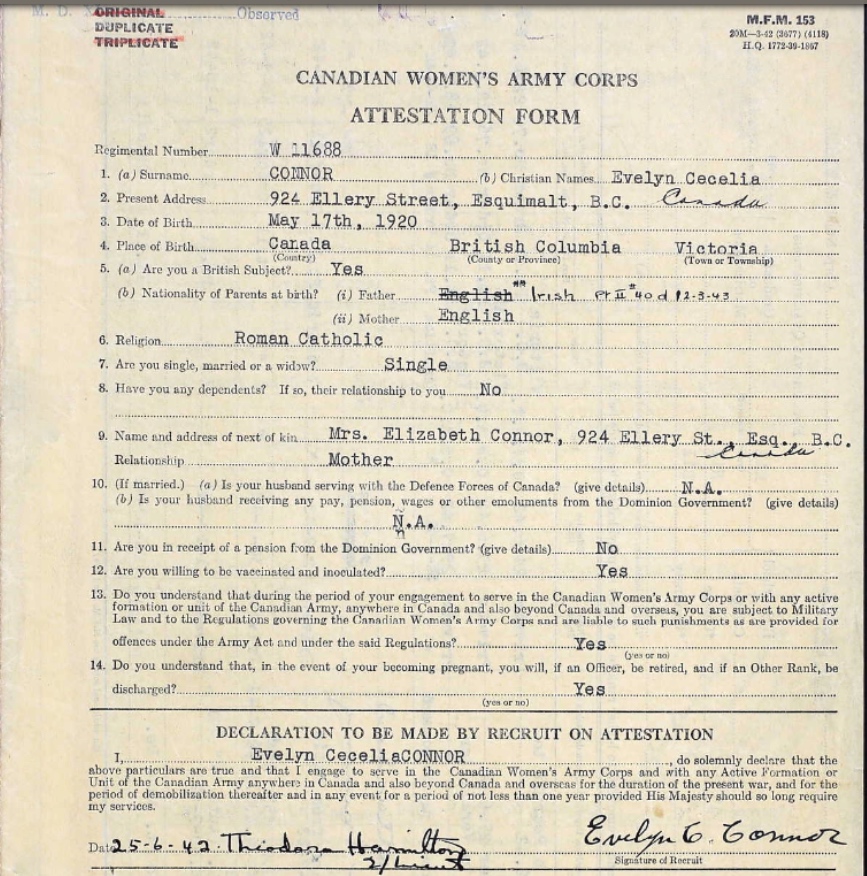 M. D. Observed
ORIGINAL
DUPLICATE
TRIPLICATE
M.F.M. 153
20M—3-42 (3677) (4118)
H.Q. 1772-39-1867
CANADIAN WOMEN'S ARMY CORPS
ATTESTATION FORM
Regimental Number W 11688
1. (a) Surname CONNOR (b) Christian Names Evelyn Cecelia
2. Present Address 924 Ellery Street, Esquimalt, B.C. Canada
3. Date of Birth May 17th, 1920
4. Place of Birth Canada British Columbia Victoria
(Country) (County or Province) (Town or Township)
5. (a) Are you a British Subject? Yes
(b) Nationality of Parents at birth? (i) Father English Irish Pt II #40 d 12-3-43
(ii) Mother English
6. Religion Roman Catholic
7. Are you single, married or a widow? Single
8. Have you any dependents? If so, their relationship to you No
9. Name and address of next of kin Mrs. Elizabeth Connor, 924 Ellery St., Esq., B.C.
Canada
Relationship Mother
10. (If married.) (a) Is your husband serving with the Defence Forces of Canada? (give details) N.A.
(b) Is your husband receiving any pay, pension, wages or other emoluments from the Dominion Government? (give details)
N.A.
11. Are you in receipt of a pension from the Dominion Government? (give details) No
12. Are you willing to be vaccinated and inoculated? Yes
13. Do you understand that during the period of your engagement to serve in the Canadian Women's Army Corps or with any active
formation or unit of the Canadian Army, anywhere in Canada and also beyond Canada and overseas, you are subject to Military
Law and to the Regulations governing the Canadian Women's Army Corps and are liable to such punishments as are provided for
offences under the Army Act and under the said Regulations? Yes
(yes or no)
14. Do you understand that, in the event of your becoming pregnant, you will, if an Officer, be retired, and if an Other Rank, be
discharged? Yes
(yes or no)
DECLARATION TO BE MADE BY RECRUIT ON ATTESTATION
I, Evelyn CeceliaCONNOR, do solemnly declare that the
above particulars are true and that I engage to serve in the Canadian Women's Army Corps and with any Active Formation or
Unit of the Canadian Army anywhere in Canada and also beyond Canada and overseas for the duration of the present war, and for the
period of demobilization thereafter and in any event for a period of not less than one year provided His Majesty should so long require
my services.
Date 25-6-42 Theodora Hamilton Evelyn C. Connor
2/Lieut Signature of Recruit